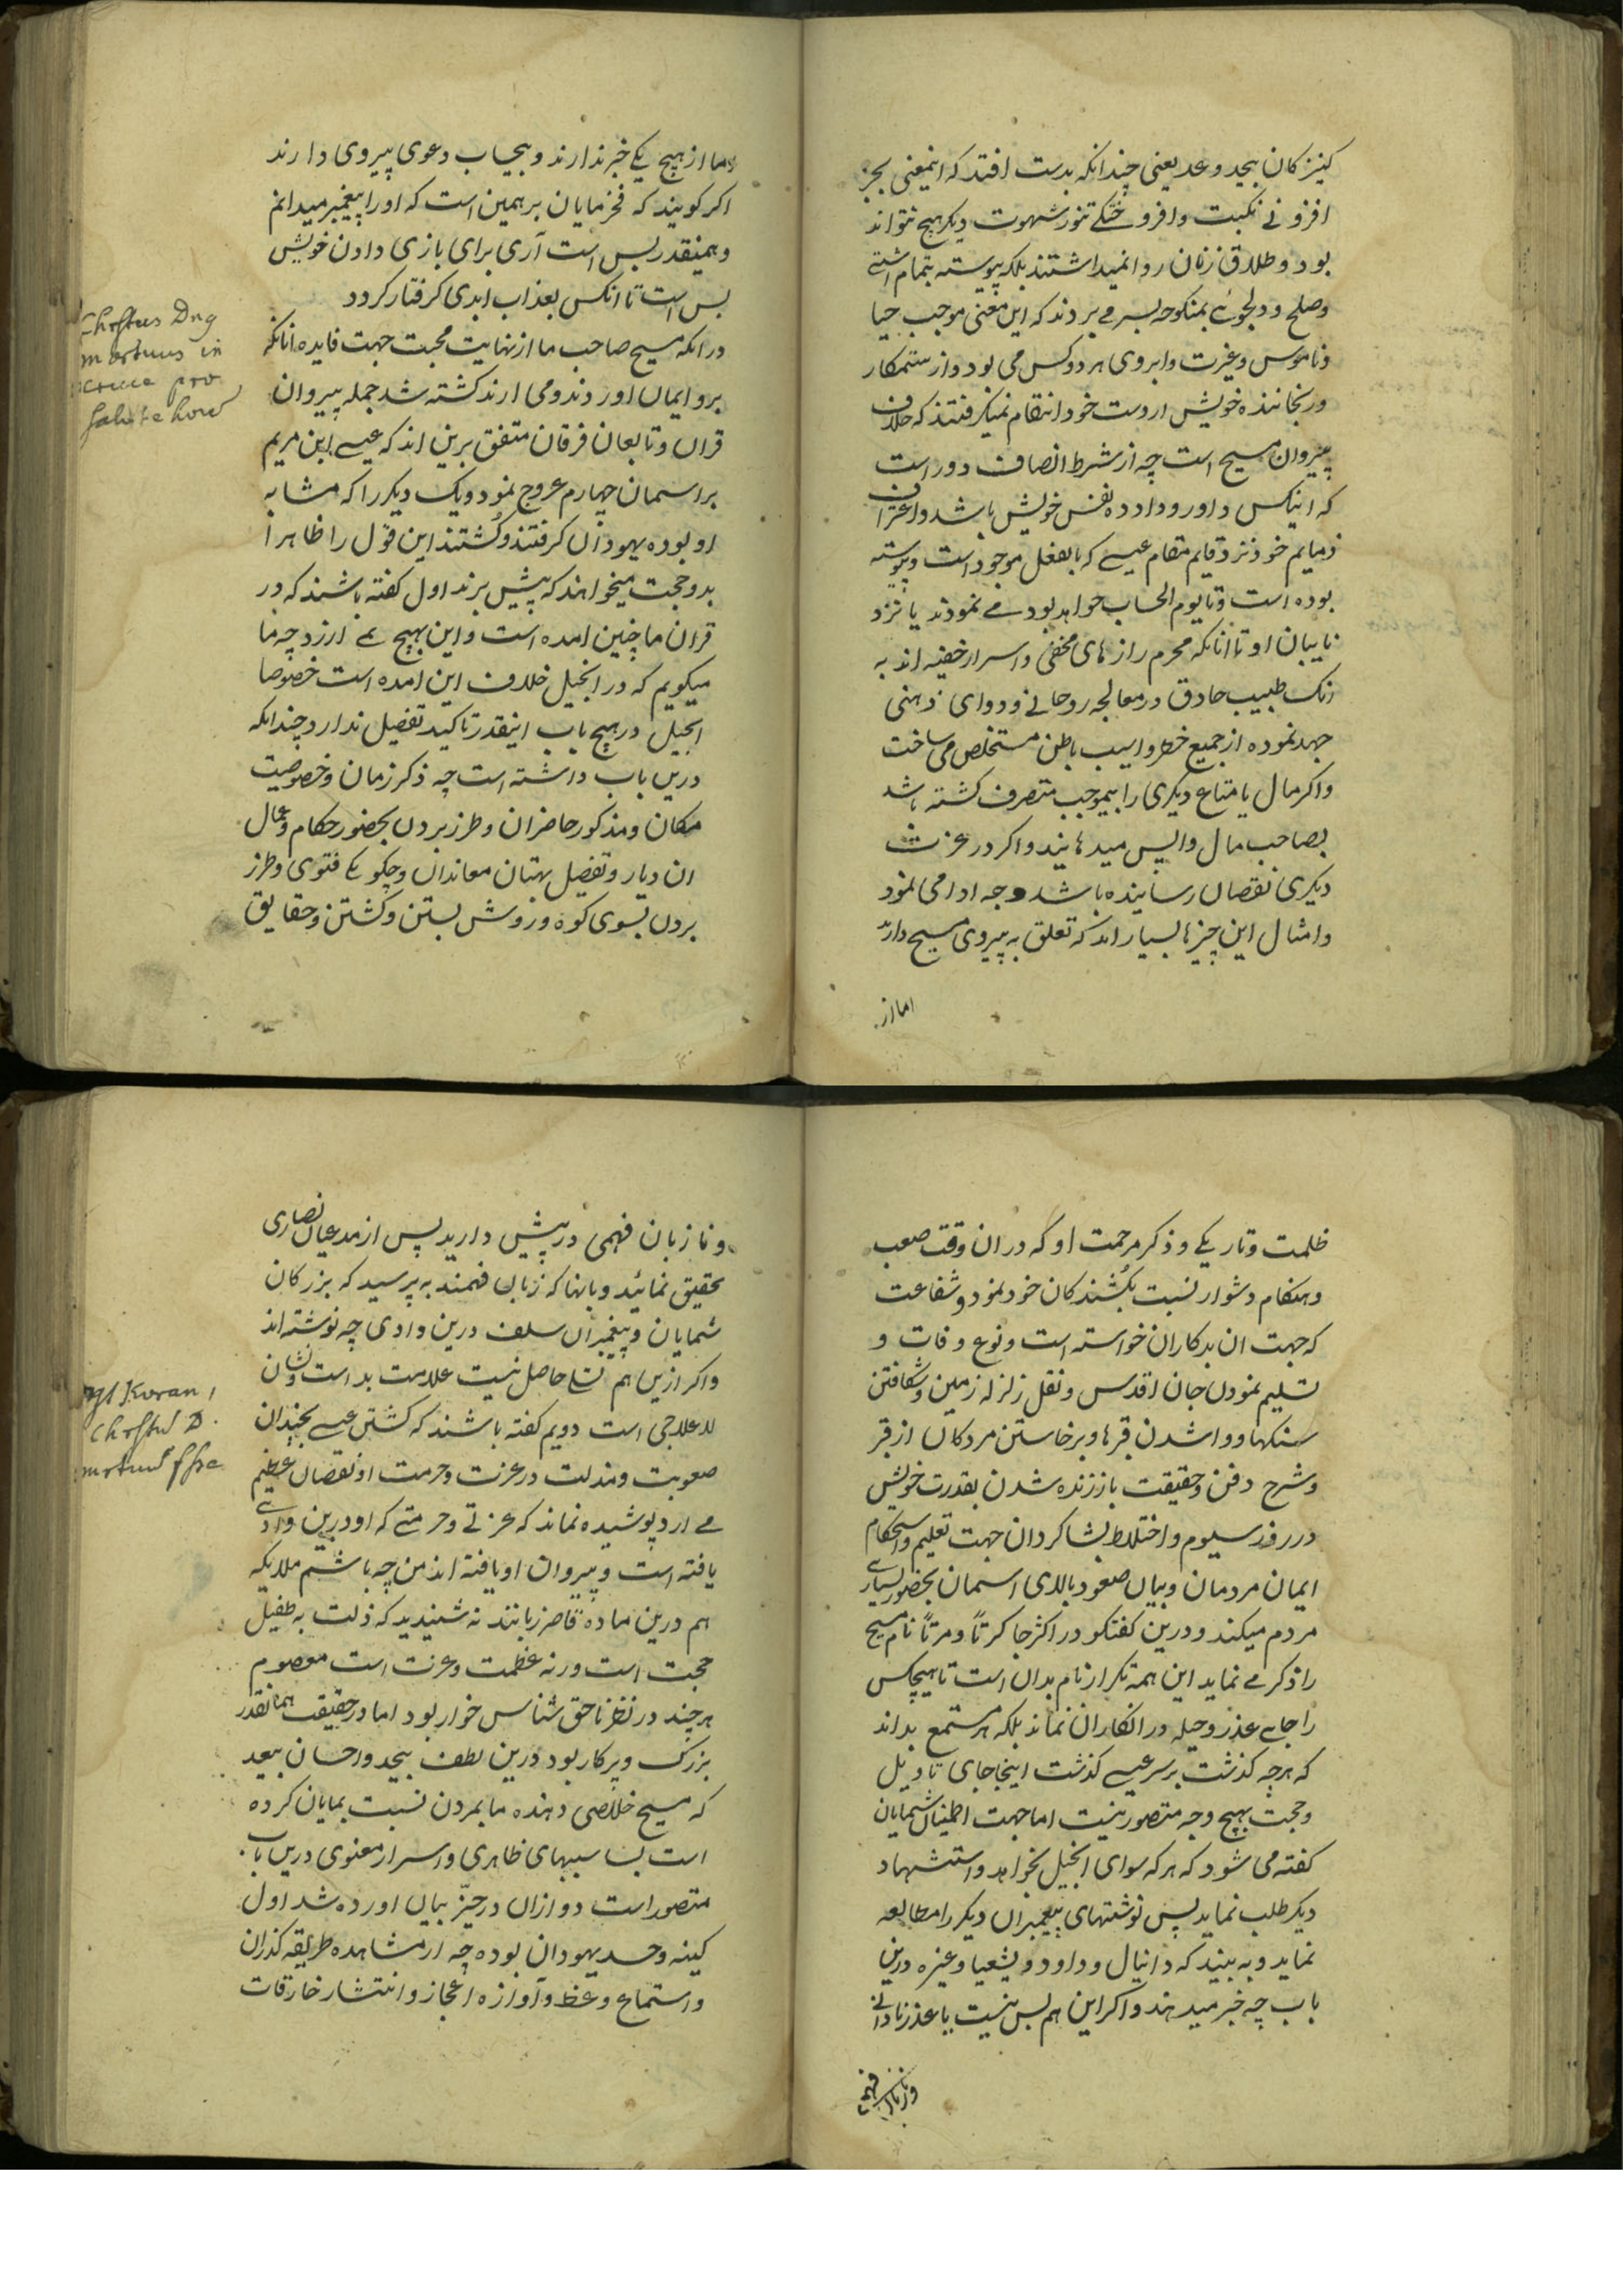 کنیزکان بیحد وعد یعنی چندانکه بدست افتد که اینمعنی بجز
افزونے نکبت وافروختکے تنور شهوت دیکر هیچ نتواند
بود وطلاق زنان روا نمیداشتند بلکه پیوسته بتمام اشتے
وصلح ودلجوئے بمنکوحه بسر مے بردند که این معنی موجب حیا
وناموس وغیرت وابروی هر دوکس می بود واز ستمکار
ورنجاننده خویش از دست خود انتقام نمیکرفتند که خلاف
پیروان مسیح است چه از شرط انصاف دور است
که اینکس داور وداد ده نفس خویش باشد واعتراف
ذمایم خود نزد قایم مقام عیسے که بالفعل موجود است وپیوسته
بوده است وتا یوم الحساب خواهد بود مے نمودند یا نزد
نایبان او تا انانکه محرم راز های مخفی واسرار خفیه اند به
انک طبیب حاذق در معالجه روحانے ودوای ذهنی
جهد نموده از جمیع خطر واسیب باطن مستخلص می ساخت
واکر مال یا متاع دیکری را بیموجب متصرف کشته باشد
بصاحب مال واپس میدهانیند واکر در عزت
دیکری نقصان رساننده باشد وجه ادا می نمود
وامثال این چیزها بسیار اند که تعلق به پیروی مسیح دارند
اما از
اما از هیچ یکے خبر ندارند وبیحساب دعوی پیروی دارند
اکر کویند که فخر مایان بر همین است که او را پیغمبر میدانم
وهمینقدر بس است آری برای بازی دادن خویش
بس است تا انکس بعذاب ابدی کرفتار کردد
در انکه مسیح صاحب ما از نهایت محبت جهت فایده انانکه
برو ایمان اوردند ومی ارند کشته شد جمله پیروان
قران وتابعان فرقان متفق برین اند که عیسے ابن مریم
بر اسمان چهارم عروج نمود ویک دیکر را که مشابه
او بوده یهودان کرفتند وکُشتند این قول را ظاهرا
بدو حجت میخواهند که پیش برند اول کفته باشند که در
قران ما چنین امده است واین بهیچ نمے ارزد چه ما
میکویم که در انجیل خلاف این امده است خصوصا
انجیل در هیچ باب اینقدر تاکید تفصیل ندارد چندانکه
درین باب داشته است چه ذکر زمان وخصوصیت
مکان ومذکور حاضران وطرز بردن بحضور حکام وعمال
ان دیار وتفصیل بهتان معاندان وچکونکے فتوی وطرز
بردن بسوی کوه وروش بستن وکشتن وحقایق
Christus Dns
mortuus in
cruce pro
salute hom
ظلمت وتاریکے وذکر مرحمت او که در ان وقت صعب
وهنکام دشوار نسبت بکُشندکان خود نمود وشفاعت
که جهت ان بدکاران خواسته است ونوع وفات و
تسلیم نمودن جان اقدس ونقل زلزله زمین وشکافتن
سنکها ووا شدن قبرها وبرخاستن مردکان از قبر
وشرح دفن وحقیقت باز زنده شدن بقدرت خویش
در روز سیوم واختلاط بشاکردان جهت تعلیم واستحکام
ایمان مردمان وبیان صعود بالای اسمان بحضور بسیارے
مردم میکند ودرین کفتکو در اکثر جا کرتاً ومرتاً نام مسیح
را ذکر مے نماید این همه تکرار نام بدان است تا هیچکس
را جاے عذر وحیله در انکار ان نماند بلکه هر مستمع بداند
که هرچه کذشت بر سر عیسے کذشت اینجا جای تاویل
وحجت بهیچ وجه متصور نیست اما جهت اطمینان شمایان
کفته می شود که هر که سوای انجیل بخواهد واستشهاد
دیکر طلب نماید پس نوشتهای پیغمبران دیکر را مطالعه
نماید وبه بیند که دانیال وداود ویشعیا وغیره درین
باب چه خبر میدهند واکر این هم بس نیست یا عذر نادانے
وزبان فهمی
ونا زبان فهمی در پیش دارید پس از مدعیان نصاری
تحقیق نمائید وبانها که زبان فهمند به پرسید که بزرکان
شمایان وپیغمبران سلف درین وادی چه نوشته اند
واکر ازین هم تسلے حاصل نیست علامت بد است ونشان
لاعلاجی است دویم کفته باشند که کشتن عیسے بچندان
صعوبت ومذلت در عزت وحرمت او نقصان عظیم
مے ارد پوشیده نماند که عزتے وحرمتے که او درین وادے
یافته است وپیروان او یافته اند من چه باشم ملایکه
هم درین ماده قاصر زبانند نه شنیدید که ذلت به طفیل
محبت است ورنه عظمت وعزت است معصوم
هر چند در نظر ناحق شناس خوار بود اما در حقیقت همانقدر
بزرک وپرکار بود درین لطف بیحد واحسان بیعد
که مسیح خلاصی دهنده ما بمردن نسبت بمایان کرده
است بسا سببهای ظاهری واسرار معنوی درین باب
متصور است دو ازان در حیّز بیان اورده شد اول
کینه وحسد یهودان بوده چه از مشاهده طریقه کذران
واستماع وعظ وآوازه اعجاز وانتشار خارقات
Koran
Christus D.
mortuus esse